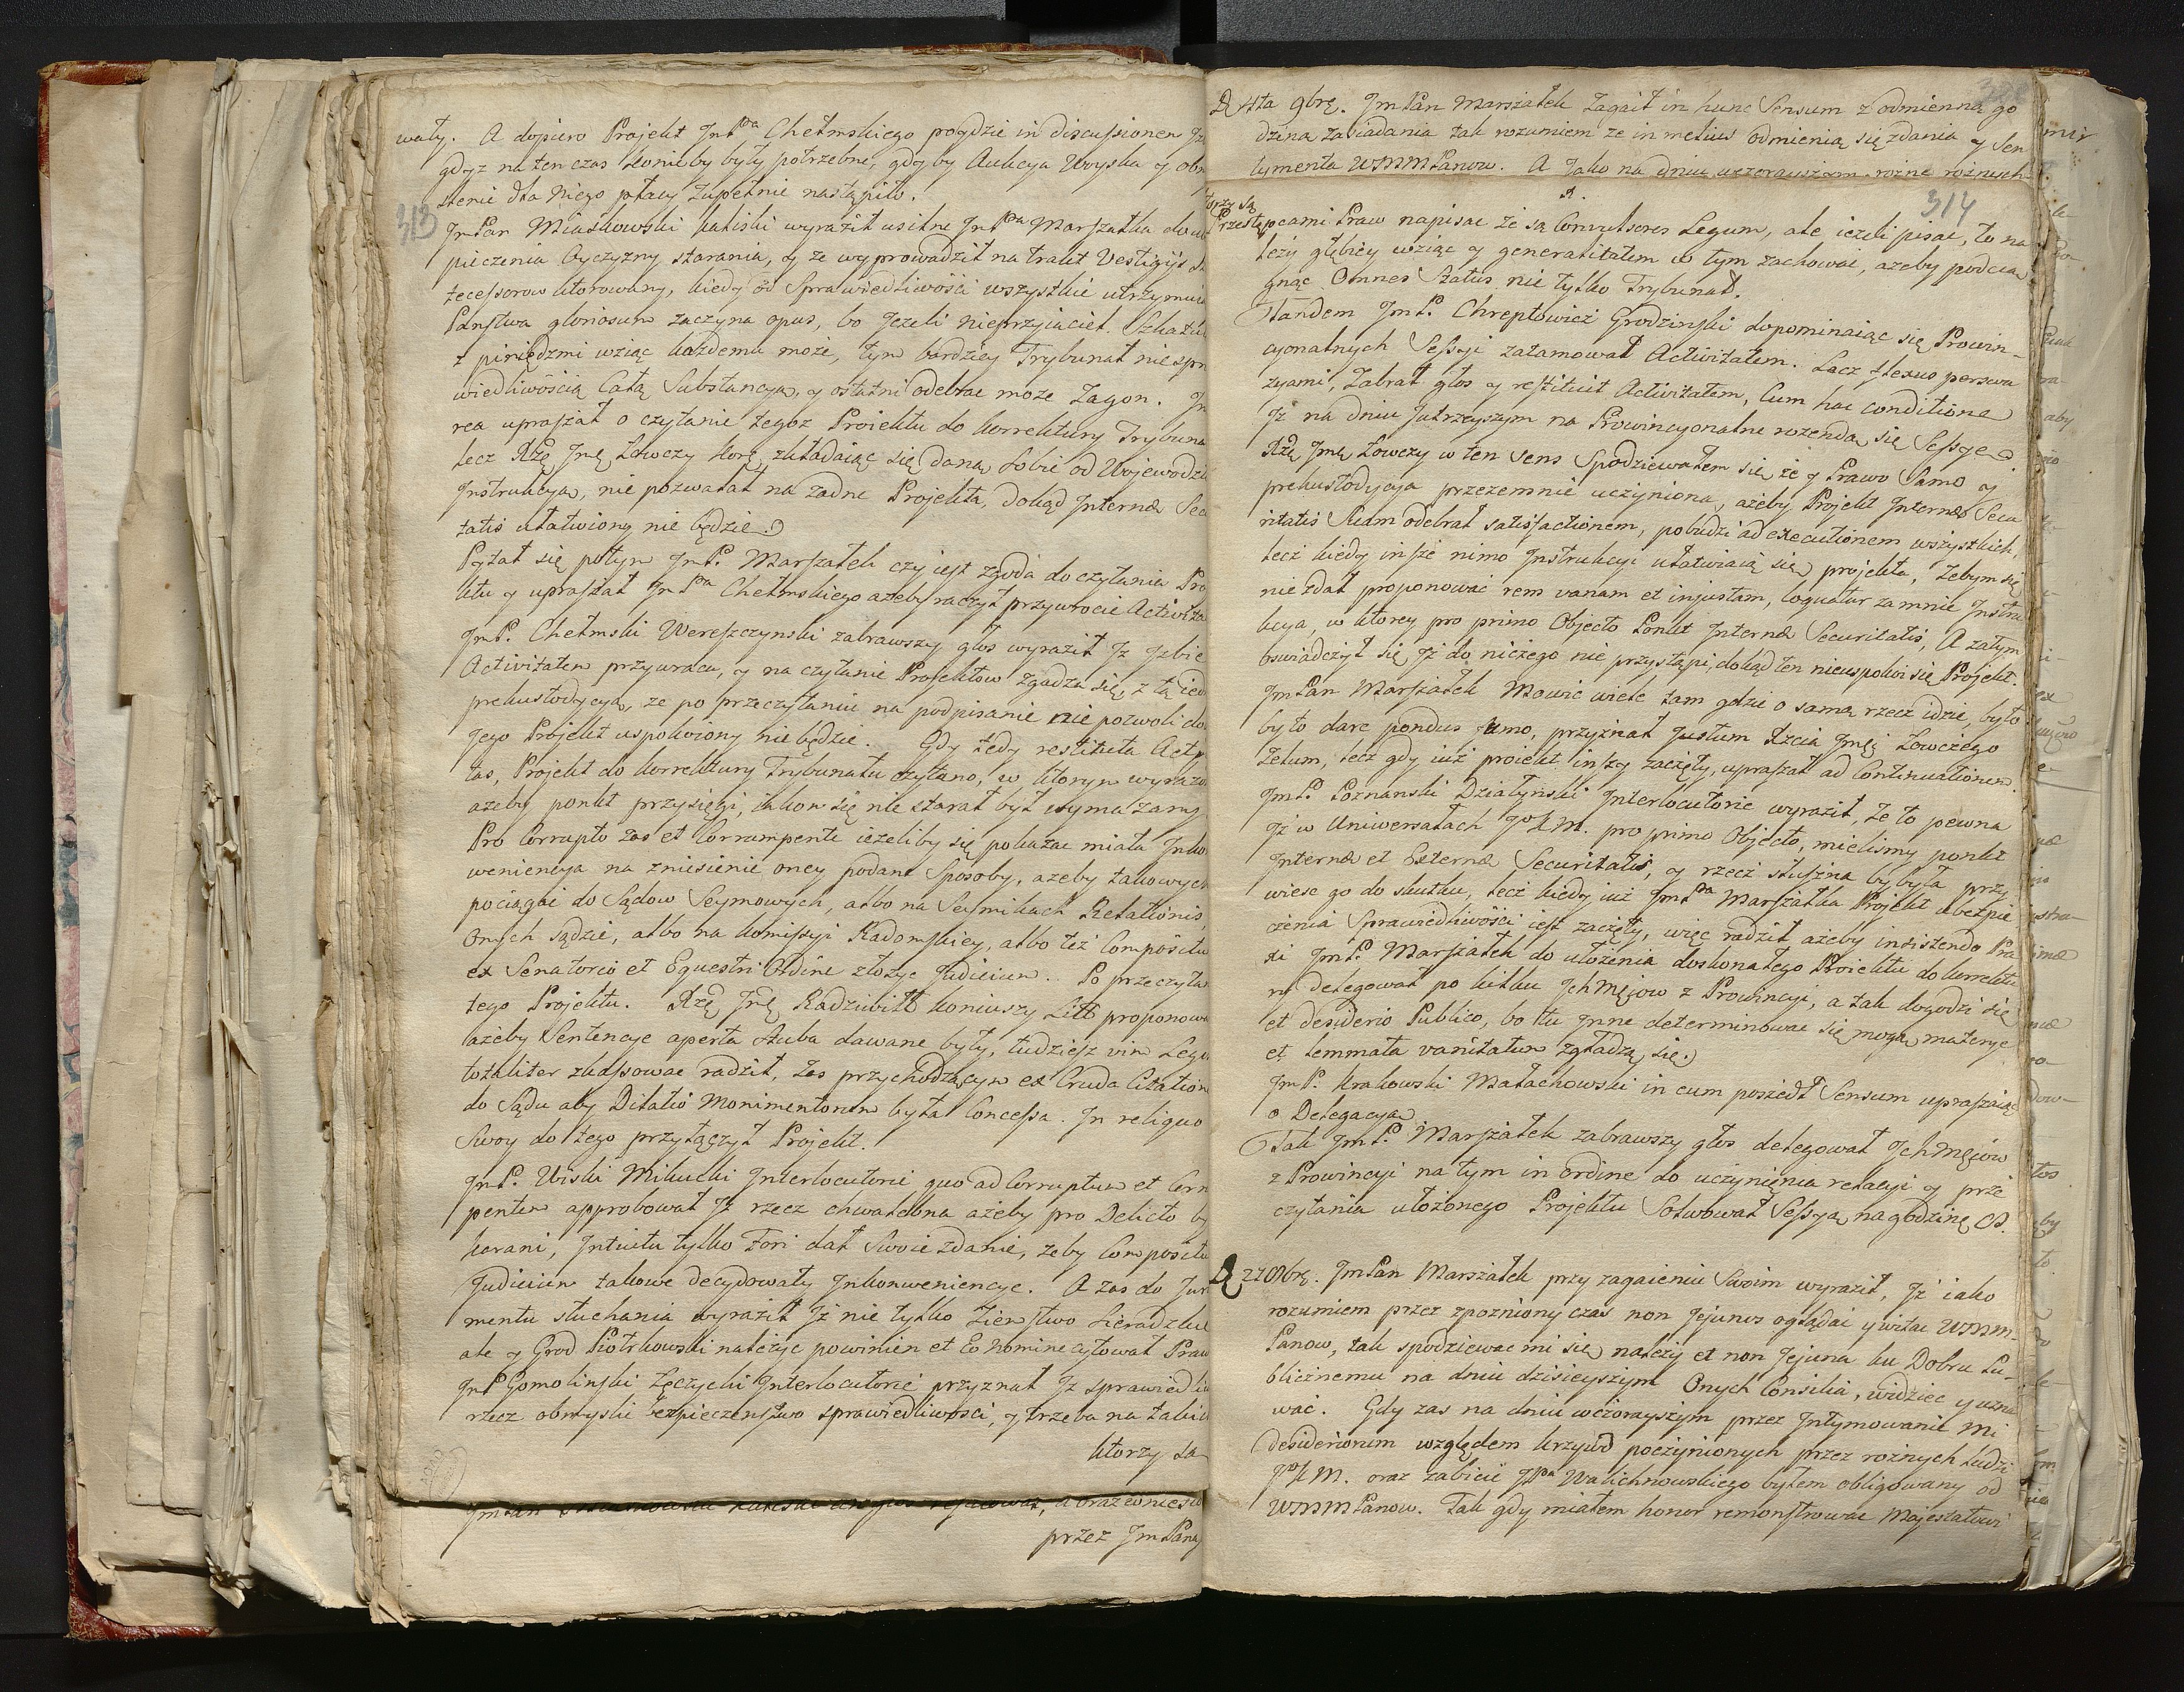 wały. A dopiero Projekt JmPna Chełmskiego poydzie in discussionem Jż
gdyż na ten czas konieby były potrzebne, gdyby Aukcya Woyska y
slenie dla niego płacy zupełnie nastąpiło.
313
JmPan Miaskowski kaliski wyraził usilne JmPna Marszałka do
pieczenia Oyczyzny starania, y ze wyprowadził na trakt Vestigijs
tecessorow utorowany, kiedy od Sprawiedliwości wszystkie utrzymuie
Państwa gloriosum zaczyna opus, bo Jeżeli nieprzyiaciel Szkatu
z pieniędzmi wziąc każdemu może, tym bardziey Trybunał niespra
wiedliwością Całą Substancyą, y ostatni odebrac może Zagon.
rea upraszał o czytanie tegoż Proiektu do korrektury Trybuna
lecz Xżę Jmę Łowczy Korę. zkładaiąc się daną sobie od Wojewodz
Jnstrukcyą, nie pozwalał na żadne Projekta, dokąd Internæ Sec
tatis ułatwiony nie będzie.
Pytał się potym JmP. Marszałek czy iest zgoda do czytania Pro
ktu y upraszał JmPna Chełmskiego azeby raczył przywrocic Activita
JmP. Chełmski Wereszczynski zabrawszy głos wyraził Jż Jzbie
Activitatem przywraca, y na czytanie Projektow zgadza się, z tą ied
prekustodycyą, ze po przeczytaniu na podpisanie nie pozwoli do
Jego Projekt uspokoiony nie będzie. Gdy tedy restituta Act
tas, Projekt do korrektury Trybunału czytano, w ktorym wyrazo
azeby punkt przysięgi, iakom się nie starał był wymazany
Pro Corrupto zas et Corrumpente ieżeliby się pokazac miała Jnko
weniencya na zniesienie oney podane Sposoby, azeby takowych
pociągać do Sądow Seymowych, albo na Seymikach Relationis
Onych sądzic, albo na komissyi Radomskiey, albo też Composit
ex Senatorio et Equestri Ordine złożyc Judicium. Po przeczyta
tego Projektu. Xżę Jmę Radziwiłł koniuszy Litt proponow
ażeby Sentencye aperta Stuba dawane były, tudziesz vim Leg
totaliter zkassowac radził, Zas przychodzącym ex Cruda Citation
do Sądu aby Dilatio Monimentorum była Concessa. In reliquo
Swoy do tego przyłączył Projekt.
JmP. Wiski Mikucki Interlocutorie quo ad Corruptum et Corru
pentem approbował Jż rzecz chwalebna ażeby pro Delicto by
karani, Intuitu tylko Fori dał Swoie zdanie, żeby Composit
Judicium takowe decydowały Jnkonweniencye. A zas do Jur
mentu słuchania wyraził Jż nie tylko Ziemstwo Sieradzkie
ale y Grod Piotrkowski należyc powinien et Eo Nomine cytował Praw
JmP. Gomolinski Łęczycki Interlocutorie przyznał Jż sprawiedli
rzecz obmyslić bezpieczeństwo sprawiedliwości, y trzeba na takich
ktorzy są
przez JmPana
D 4ta 9brę. JmPan Marszałek Zagaił in hunc Sensum z odmienną go
dziną zasiadania tak rozumiem ze in melius odmienią się zdania y Sen
tymenta WMMPanow. A Jako na dniu wczorayszym rożne rożnych
ktorzy są
314
Przestępcami Praw napisac że są Convulsores Legum, ale iezeli pisac, to na
leży głębiey wziąc y generalitatem w tym zachowac, ażeby podcia
gnąc Omnes Status nie tylko Trybunał.
Tandem JmP. Chreptowicz Grodzinski dopominaiąc się Prowin-
cyonalnych Sessyi zatamował Activitatem. Lecz flexus perswa
zyami, Zabrał głos y restituit Activitatem, Cum hac conditione
Jż na dniu Jutrzeyszym na Prowincyonalne rozenda się Sessye.
Xżę Jmę Łowczy w ten sens Spodziewałem się że y Prawo Samo y
prekustodycya przezemnie uczyniona, ażeby Projekt Internæ Secu
ritatis Suam odebrał satisfactionem, pobudzi ad executionem wszystkich,
lecz kiedy insze nimo Jnstrukcyi ułatwiaią się projekta, żebym się
nie zdał proponować rem vanam et injustam, loquatur za mnie Jnstru
kcya, w ktorey pro primo Objecto Punkt Internæ Securitatis, A zatym
oswiadczył się Jż do niczego nie przystąpi, dokąd ten nieuspokoi się Projekt.
JmPan Marszałek Mowic wiele tam gdzie o samą rzecz idzie, było
by to dare pondus fumo, przyznał Justum Xżcia Jmęi Łowczego
Zelum, lecz gdy iuż proiekt inszy zaczęty, upraszał ad Continuationem.
JmP. Poznanski Działynski Interlocutorie wyraził, Że to pewna
Jż w Uniwersałach JoKM. pro primo Objecto, mielismy punkt
Internæ et Externæ Securitatis, y rzecz słuszna by była przy
wiesc go do skutku, lecz kiedy iuż JmPna Marszałka Projekt ubezpie
czenia Sprawiedliwości iest zaczęty, więc radził ażeby insistendo Pra
xi JmP. Marszałek do ułożenia doskonałego Proiektu do korrektu
ry delegował po kilku JchMęiow z Prowincyi, a tak dogodzi się
et desiderio Publico, bo tu Jnne determinowac się mogą materye
et lemmata vanitatum zgładzą się.
JmP. Krakowski Małachowski in eum poszedł Sensum upraszaiąc
o Delegacyą
Tak JmP. Marszałek zabrawszy głos delegował JchMęiow
z Prowincyi na tym in ordine do uczynienia relacyi y prze
czytania ułożonego Projektu Solwował Sessyą na godzinę
D 22 Obrę. JmPan Marszałek przy zagaieniu Swoim wyraził, Jż iako
rozumiem przez zpozniony czas non Jejunos oglądac y witac WMM-
Panow, tak spodziewac mi się należy et non Jejuna ku Dobru Pu-
blicznemu na dniu dzisieyszym Onych Consilia, widziec y uzna
wać. Gdy zas na dniu wczorayszym przez Intymowanie mi
desideriorum względem krzywd poczynionych przez rożnych Ludzi
JoKM. oraz zabicie JPna Walichnowskiego byłem obligowany od
WMMPanow. Tak gdy miałem honor remonstrowac Majestatowi